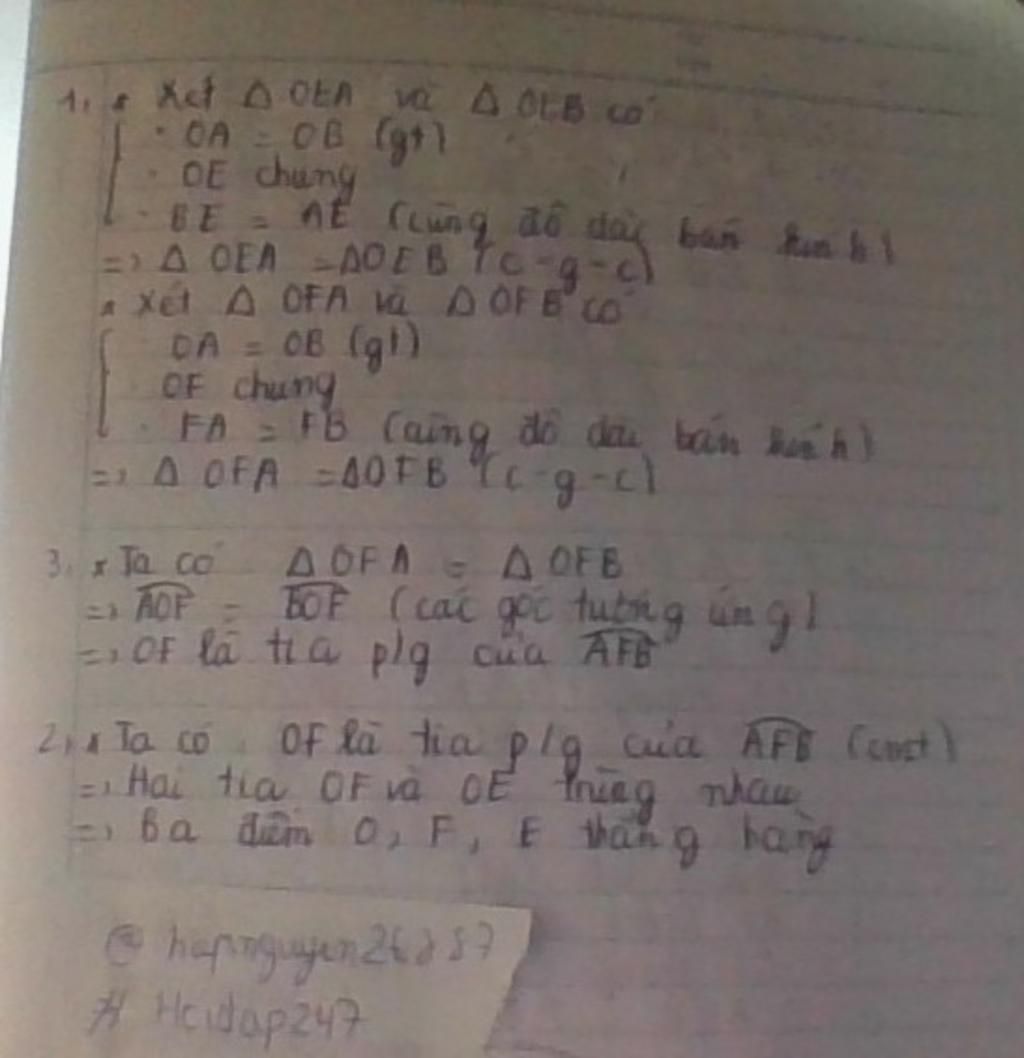 1, * Xét Δ OEA và Δ OEB có
· OA = OB (gt)
· OE chung
· BE = AE (cùng độ dài bán kính)
=> Δ OEA = ΔOEB (c-g-c)
* Xét Δ OFA và Δ OFB có
OA = OB (gt)
OF chung
· FA = FB (cùng độ dài bán kính)
=> Δ OFA = ΔOFB (c-g-c)
3, * Ta có Δ OFA = Δ OFB
=> AOF = BOF (các góc tương ứng)
=> OF là tia p/g của AFB
2, * Ta có OF là tia p/g của AFB (cmt)
=> Hai tia OF và OE trùng nhau
=> Ba điểm O, F, E thẳng hàng
# Hoidap247